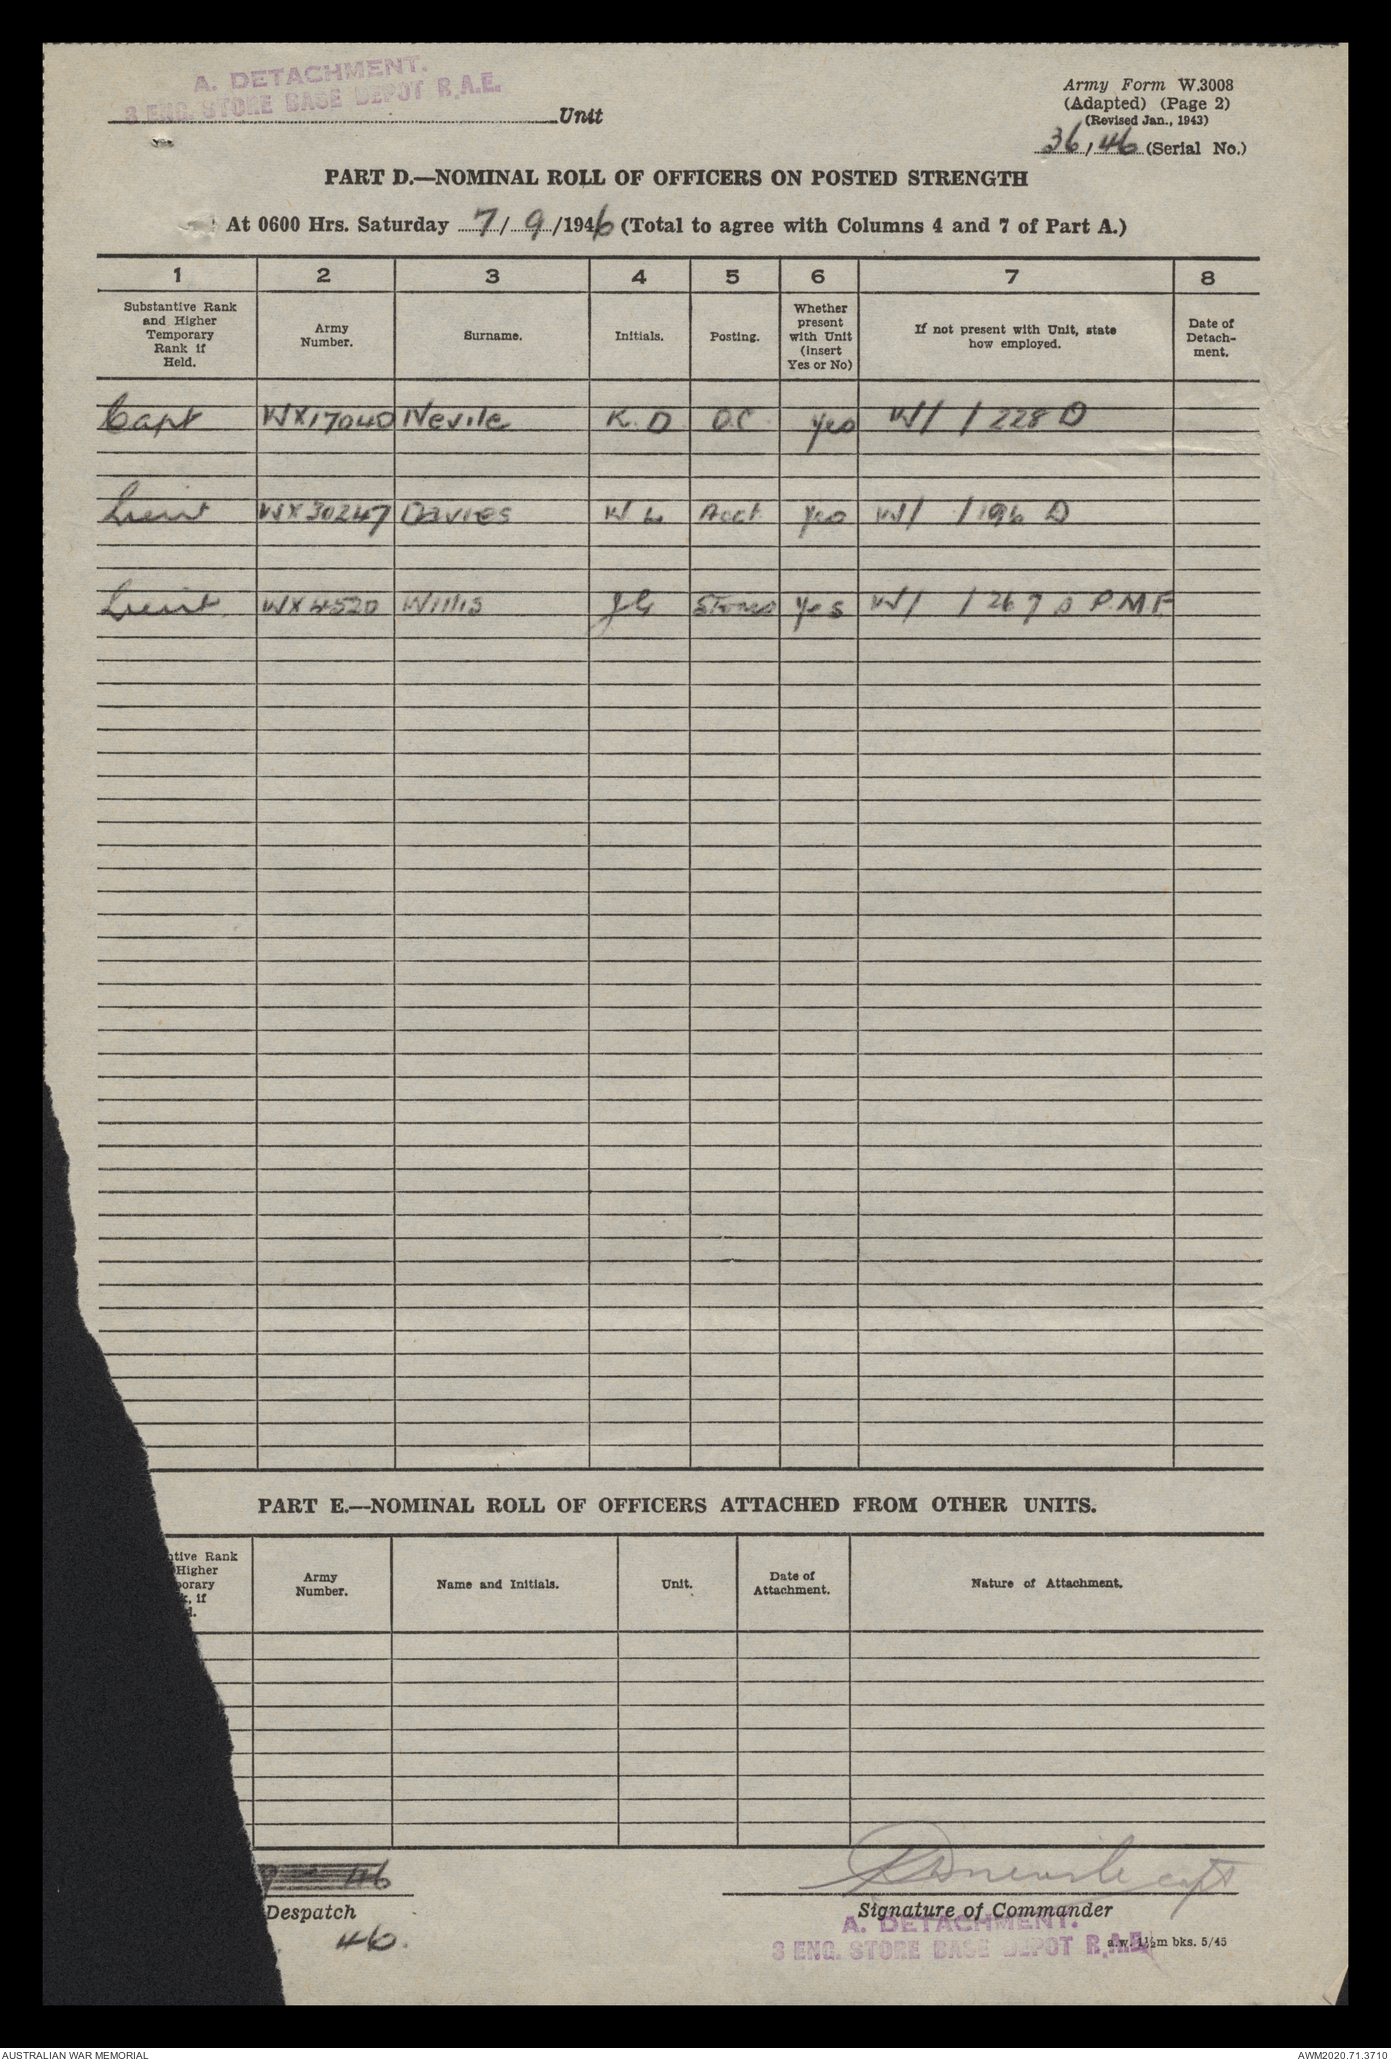 A. DETACHMENT.
3 ENG. STORE BASE DEPOT R.A.E.
Unit
Army Form W.3008
(Adapted) (Page 2)
(Revised Jan., 1943)
36/46 (Serial No.)
PART D.—NOMINAL ROLL OF OFFICERS ON POSTED STRENGTH
At 0600 Hrs. Saturday 7/9/1946 (Total to agree with Columns 4 and 7 of Part A.)
1 2 3 4 5 6 7 8
Substantive Rank and Higher Temporary Rank if Held. Army Number. Surname. Initials. Posting. Whether present with Unit (insert Yes or No) If not present with Unit, state how employed. Date of Detach-ment.
Capt WX17040 Nevile K. D O.C. Yes W/ / 228 D
Lieut WX30247 Davies W L Acct. Yes W/ / 196 D
Lieut WX4520 Willis J G Stores Yes W/ / 267 D P.M.F.
PART E.—NOMINAL ROLL OF OFFICERS ATTACHED FROM OTHER UNITS.
ntive Rank Higher porary k, if d. Army Number. Name and Initials. Unit. Date of Attachment. Nature of Attachment.
9 46
KDNevile Capt
Despatch
Signature of Commander
46.
A. DETACHMENT.
3 ENG. STORE BASE DEPOT R.A.E.
a.w. 1½m bks. 5/45
AUSTRALIAN WAR MEMORIAL
AWM2020.71.3710